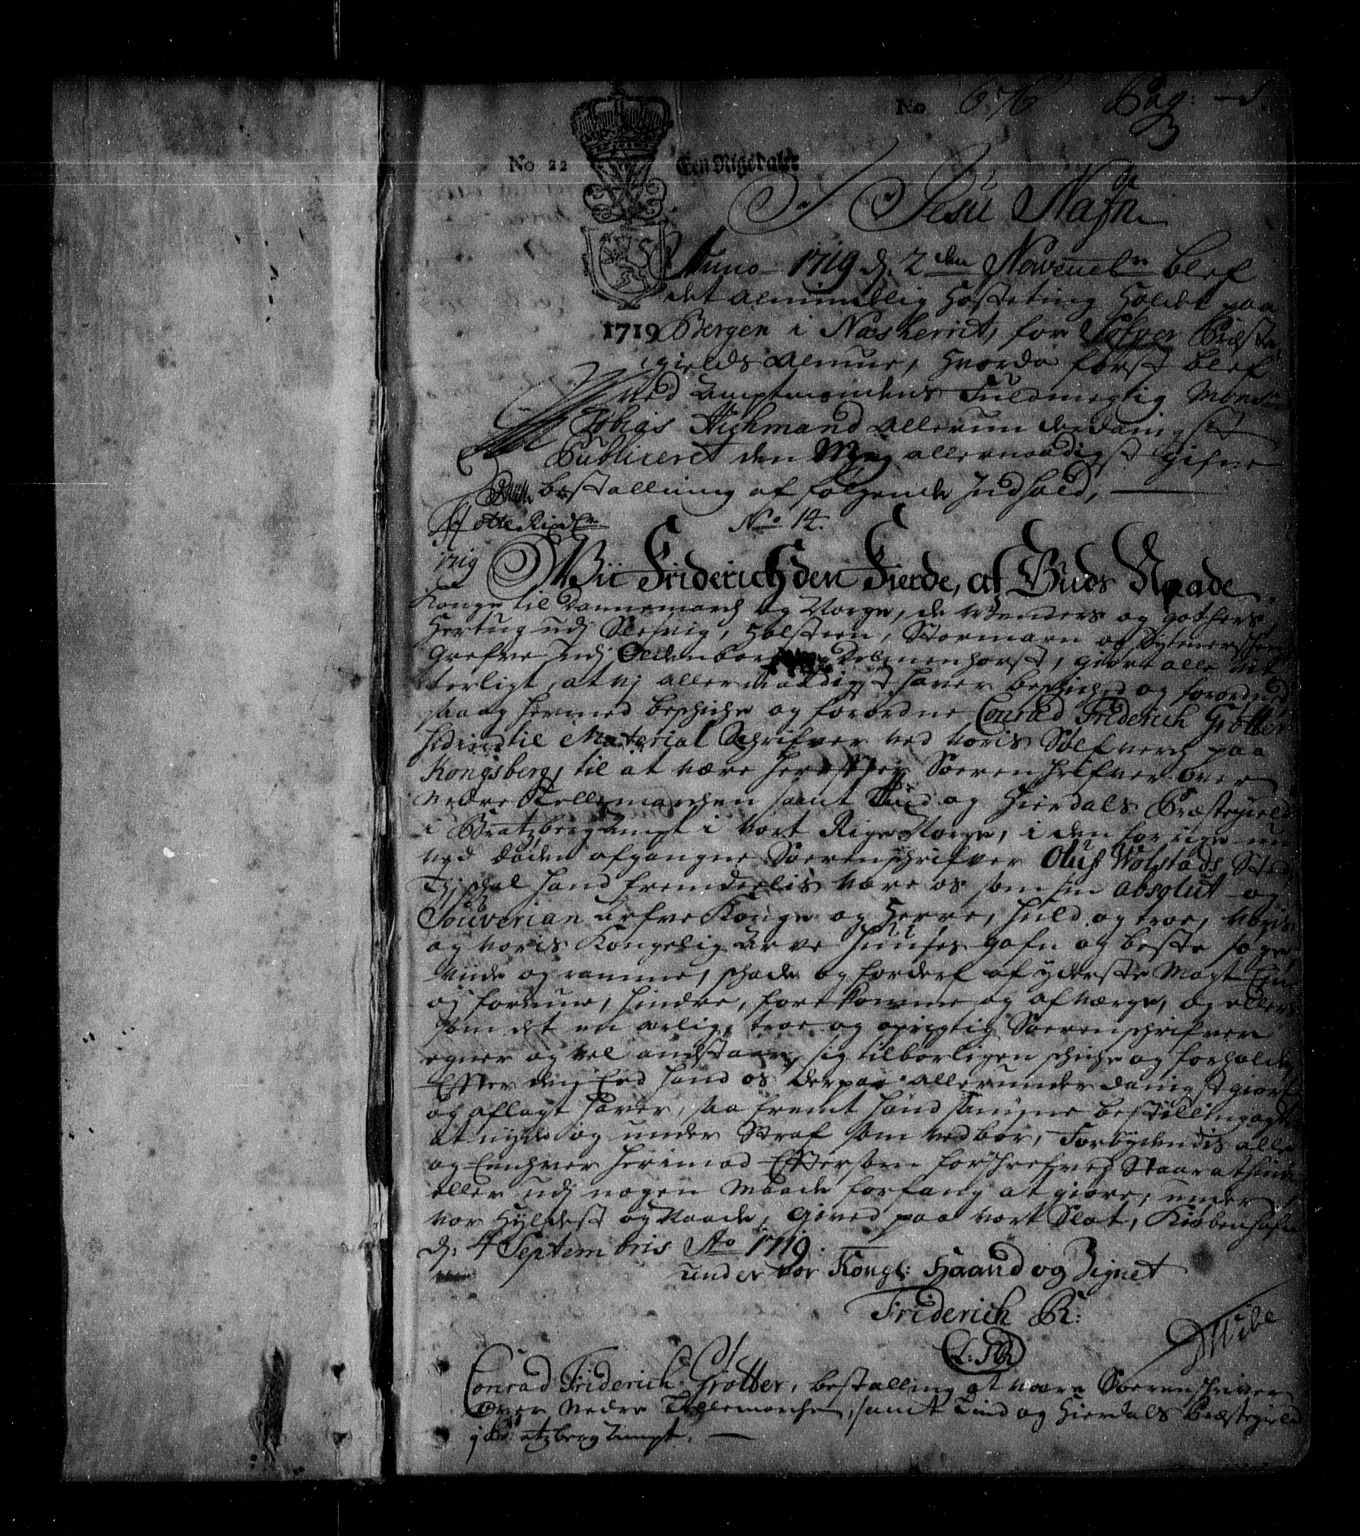 No 676 Pag: 1.
No 22 Een Rigsdaler
I Jesu Nafn
Anno 1719 d. 2den Novembr blef
det almindelig Høsteting Holdt paa
1719 Bergen i Nessherrit, for Søfver Præste
gields Almue, hvorda først blef
ved Amptmandens Fuldmegtig Mons:
Tobias Hichmand allerunderdanigst
Publiceret den allernaadigst gifne
bestalling af følgende Indhold,
No 14.
1719
Wii Friderich den Fierde, af Guds Naade
Konge til Dannemarch og Norge, de Wenders og Gothers
Hertug udj Slesvig, Holsteen, Stormarn og Dytmerschen
Grefve udj Oldenborg Delmenhorst, giøre alle vit-
terligt, at vj allernaadigst haver beschicked og forordned
saa og hermed beschicke og forordne Conrad Friderich Grotter
hidindtil Material Schrifver ved Voris Sølfverch paa
Kongsberg, til at være Sorenschrifver over
Nedre Tellemarchen samt Tind og Hierdals Præstegield
i Bratzberg Ampt i Vort Rige Norge, i den forrige nu
ved Døden afgangne Sorenschrifver Oluf Wolstads Sted
Thj schal hand fremdeelis være os som sin absolut og
Souverain Arfve Konge og Herre, huld og troe, Voris
og Voris Kongelig Arve Huuses gafn og beste søge,
vide og ramme, schade og forderf af yderste Magt
og formue, hindre, forekomme og afværge, og ellers
som det en ærlig, troe og oprigtig Sorenschrifver
egner og vel anstaar, sig tilbørligen schiche og forholde
Efter den Eed hand os derpaa allerunderdanigst giort
og aflagt haver, saa fremt hand samme bestilling agter
at nyde og under Straf som vedbør, Forbydendis alle
og Eenhver herimod Eftersom forschrefvet staar at hindre
eller udj nogen Maade forfang at giøre, under
vor Hyldest og Naade, Gived paa vort Slot, Kiøbenhafn
d. 4 Septembris Ao 1719.
under vor Kongl: Haand og Zignet
Friderich R:
L: S
Wibe
Conrad Friderich Grotter, bestalling at være Sorenschriver
over Nedre Tellemarchen, samt Tind og Hierdals Præstegield
j Bratzberg Ampt.